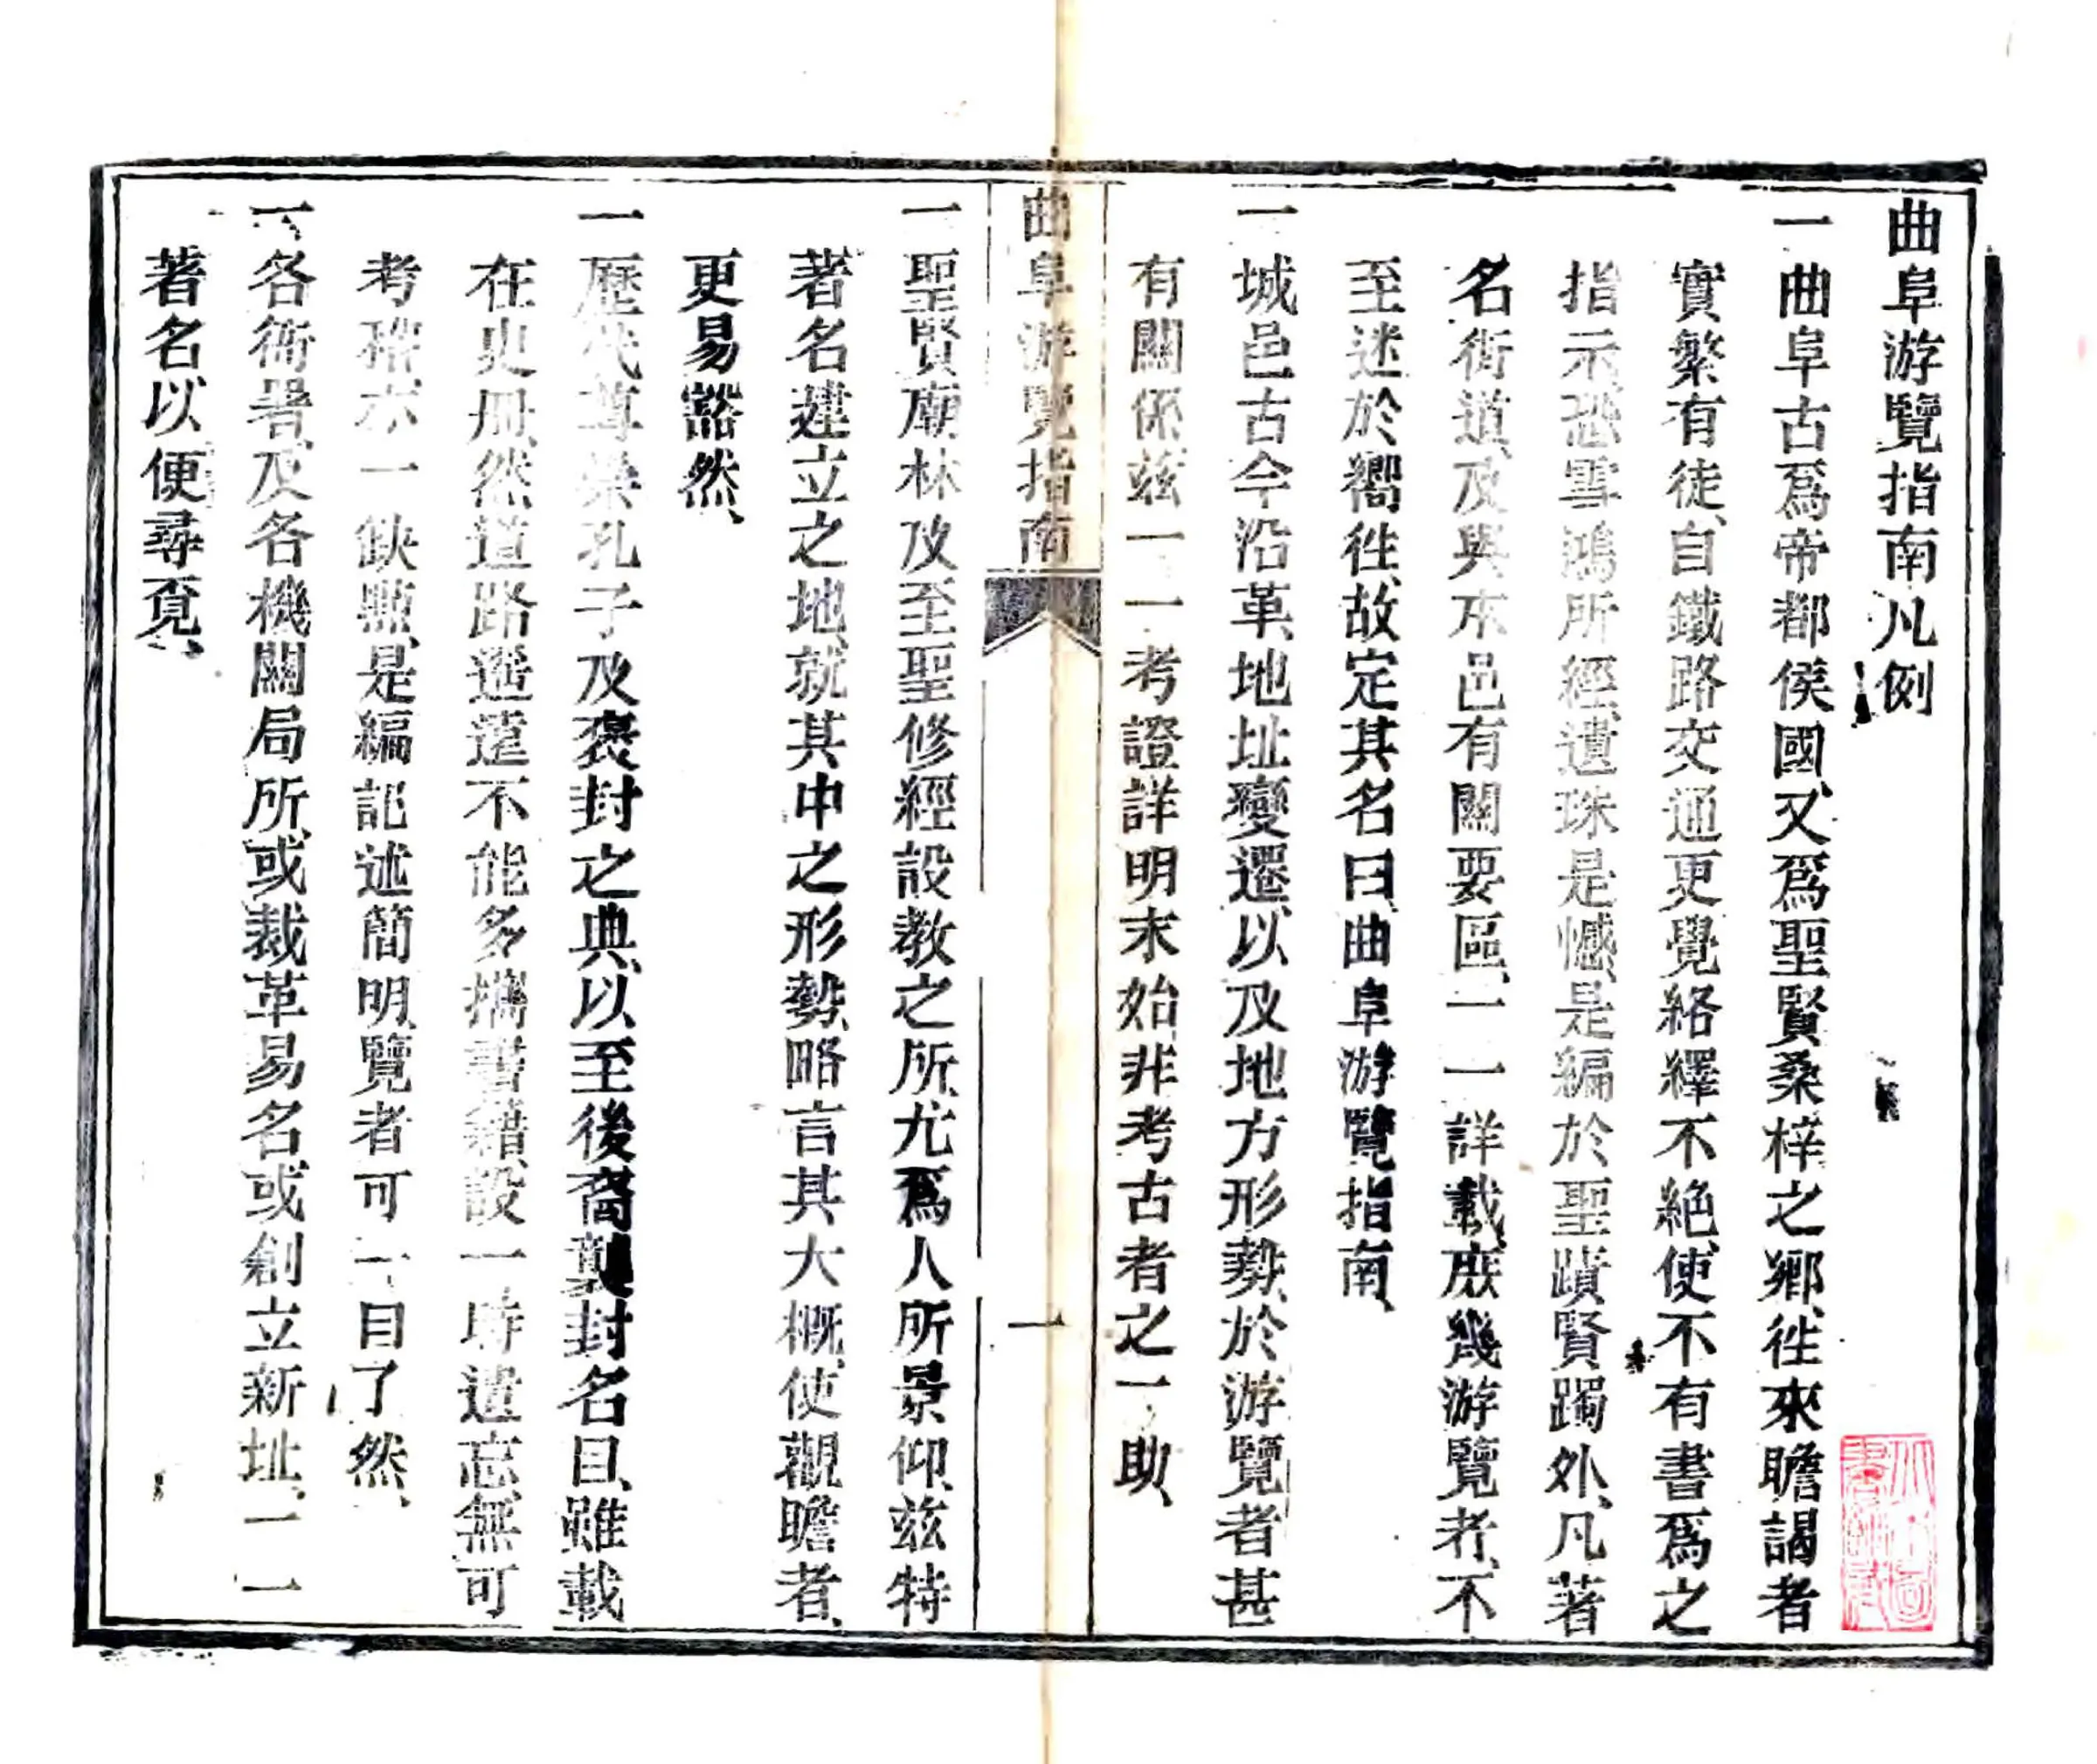 曲阜游覽指南凡例
一曲阜古爲帝都侯國、又爲聖賢桑梓之鄉、徃來瞻謁者
實繁有徒、自鐵路交通更覺絡繹不絶、使不有書爲之
指示、恐雪鴻所經、遺珠是憾、是編於聖蹟賢躅外、凡著
名街道、及與本邑有關要區、一一詳載、庶幾游覽者、不
至迷於嚮徃、故定其名曰、曲阜游覽指南、
一城邑古今沿革、地址變遷、以及地方形勢、於游覽者甚
有關係、兹一一考證詳明、末始非考古者之一助、
曲阜游覽指南
一
一聖賢廟林及至聖修經設教之所、尤爲人所景仰、兹特
著名建立之地、就其中之形勢、略言其大概、使觀瞻者、
更易豁然、
一歷代尊崇孔子及褒封之典、以至後裔襲封名目、雖載
在史册、然道路遥遠、不能多攜書籍、設一時遺忘、無可
考稽、亦一缺點、是編記述簡明、覽者可一目了然、
一各衙署、及各機關局所、或裁革易名、或創立新址、一一
著名、以便尋覔、